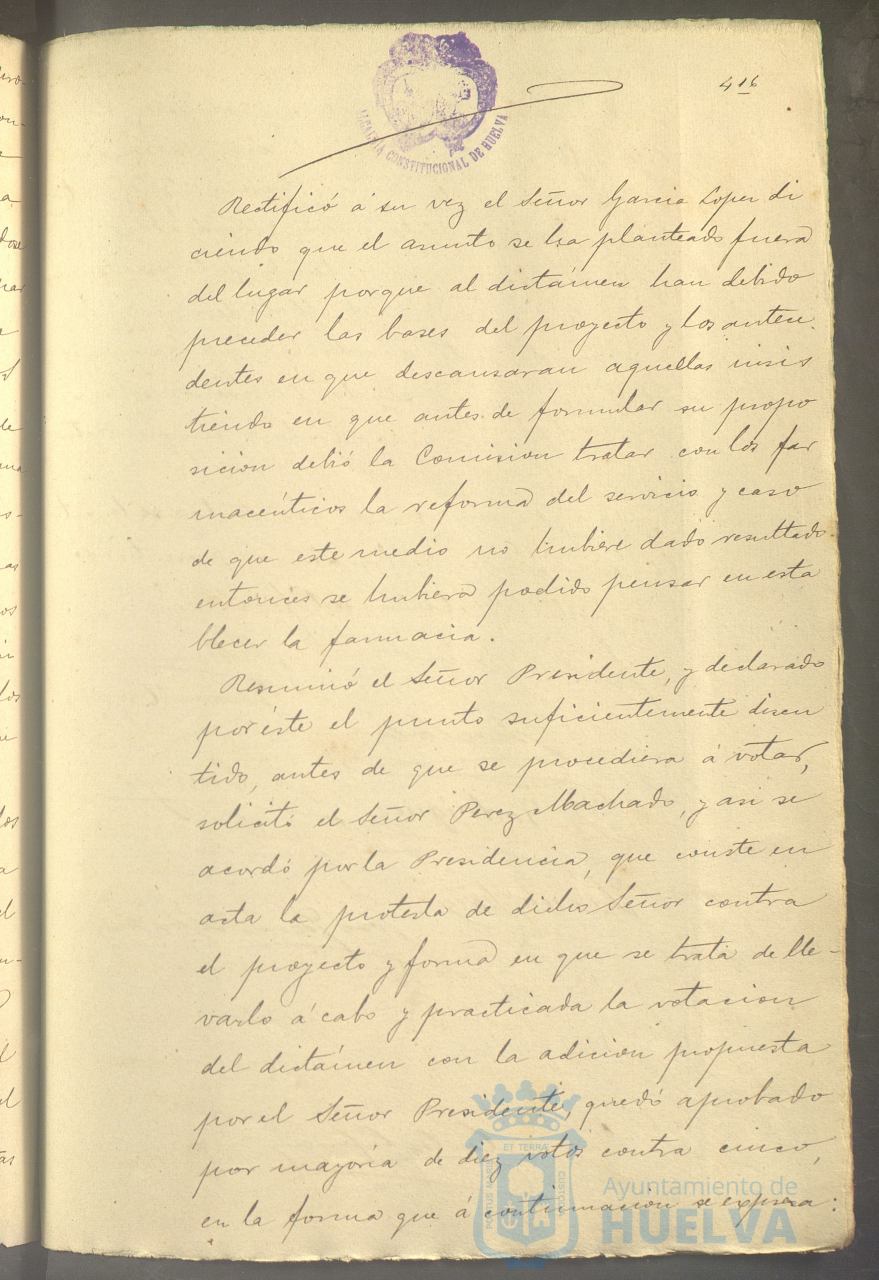 416
ALCALDIA CONSTITUCIONAL DE HUELVA
Rectificó á su vez el Señor Garcia Lopez di
ciendo que el asunto se ha planteado fuera
del lugar porque al dictámen han debido
preceder las bases del proyecto y los antece-
dentes en que descansaran aquellas insis
tiendo en que antes de formular su propo
sicion debió la Comision tratar con los far
macéuticos la reforma del servicio y caso
de que este medio no hubiere dado resultado
entonces se hubiera podido pensar en esta
blecer la farmacia.
Resumió el Señor Presidente, y declarado
por éste el punto suficientemente discu
tido, antes de que se procediera á votar,
solicitó el Señor Perez Machado, y asi se
acordó por la Presidencia, que conste en
acta la protesta de dicho Señor contra
el proyecto y forma en que se trata de lle-
varlo á cabo y practicada la votacion
del dictámen con la adicion propuesta
por el Señor Presidente, quedó aprobado
por mayoría de diez votos contra cinco,
en la forma que á continuacion se expresa:
PORTUS MARIS ET TERRAE CUSTODIA
Ayuntamiento de
HUELVA